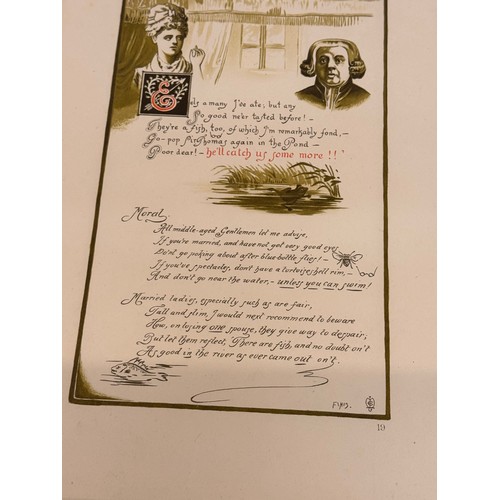 Eels a many I've ate; but any
So good ne'er tasted before! –
They're a fish, too, of which I'm remarkably fond, –
Go – pop Sir Thomas again in the Pond –
Poor dear! – he'll catch us some more !! '
Moral.
All middle-aged Gentlemen let me advise,
If you're married, and have not got very good eyes,
Don't go poking about after blue-bottle flies! –
If you've spectacles, don't have a tortoise-shell rim, –
And don't go near the water, – unless you can swim!
Married ladies, especially such as are fair,
Tall and slim, I would next recommend to beware
How, on losing one spouse, they give way to despair;
But let them reflect, There are fish, and no doubt on't
As good in the river as ever came out on't.
19